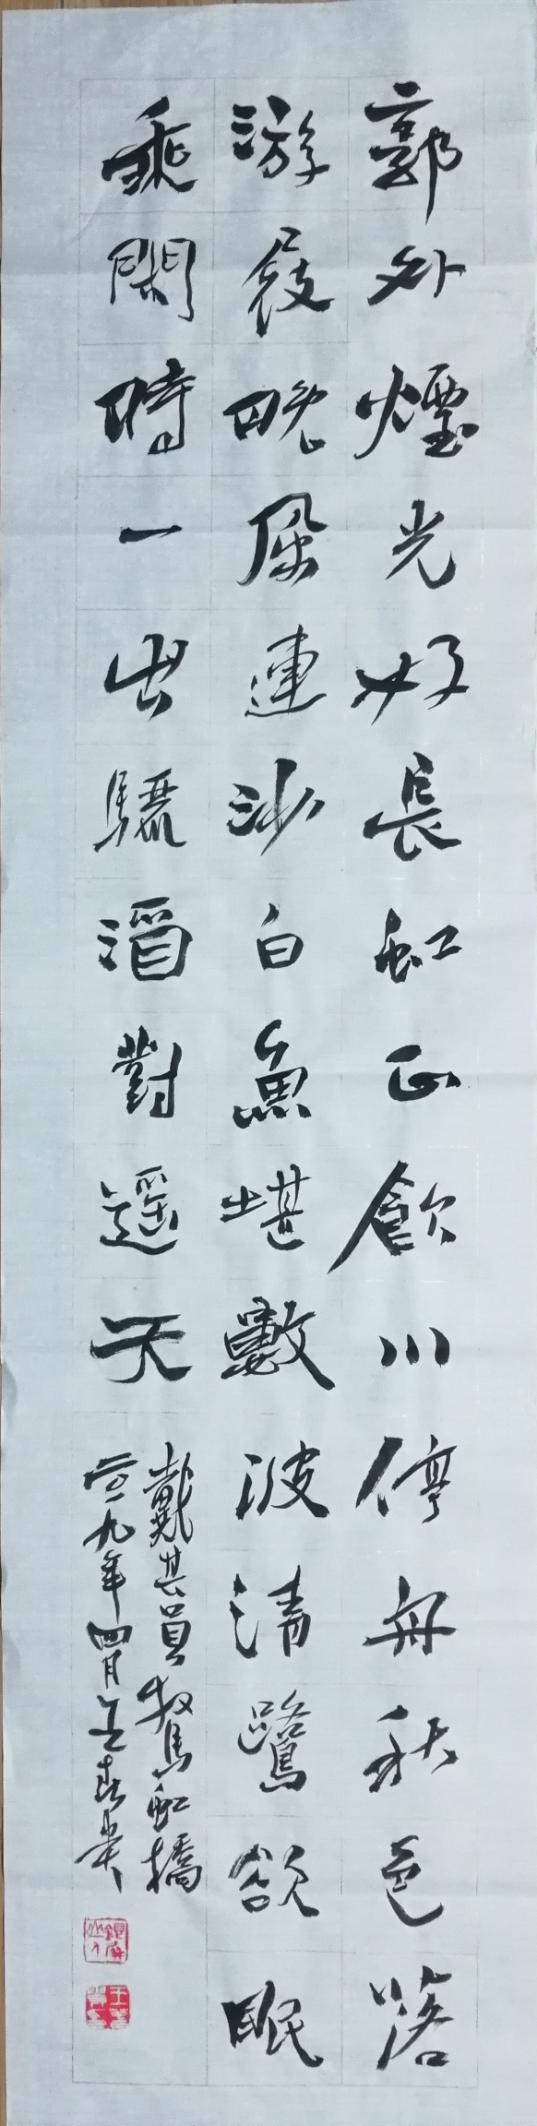 郭外煙光好長虹正飲川停舟秋色落
游屐晚風連沙白魚堪數波清鷺欲眠
乘閑時一出驪酒對遥天
戴其員 鴛虹橋
二〇一九年四月王春貴